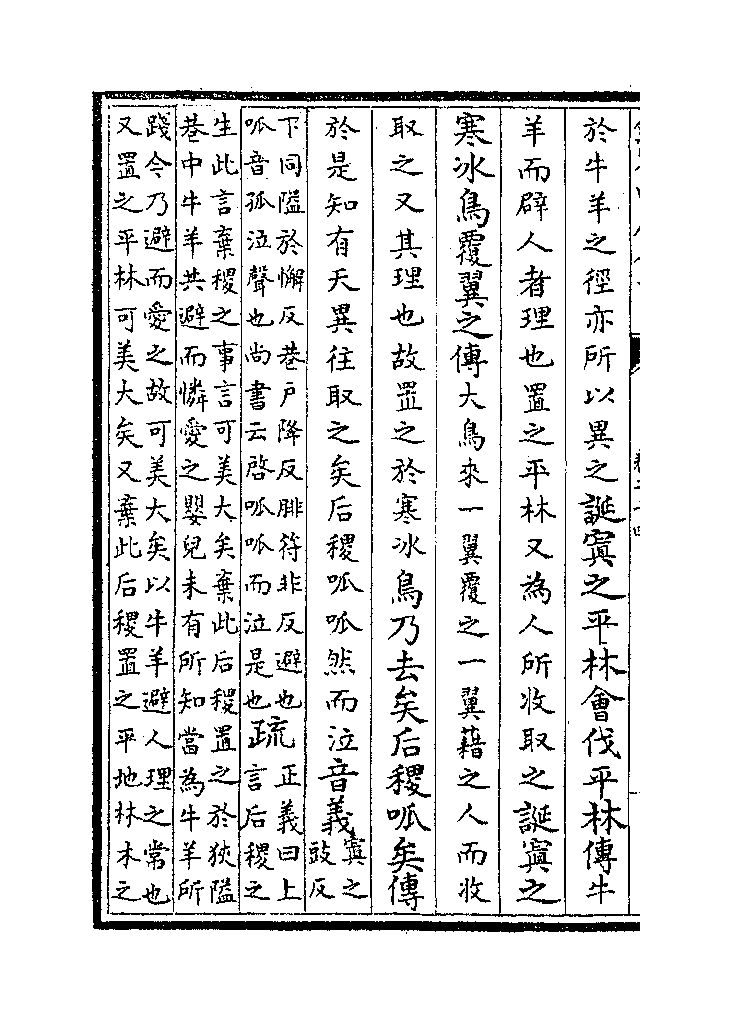 於牛羊之徑亦所以異之誕寘之平林會伐平林傳牛
羊而辟人者理也置之平林又為人所收取之誕寘之
寒冰鳥覆翼之傳大鳥來一翼覆之一翼藉之人而收
取之又其理也故置之於寒冰鳥乃去矣后稷呱矣傳
於是知有天異往取之矣后稷呱呱然而泣音義寘之
豉反
下同隘於懈反巷戶降反腓符非反避也
呱音孤泣聲也尚書云啓呱呱而泣是也疏正義曰上
言后稷之
生此言棄稷之事言可美大矣棄此后稷置之於狹隘
巷中牛羊共避而憐愛之嬰兒未有所知當為牛羊所
踐今乃避而愛之故可美大矣以牛羊避人理之常也
又置之平林可美大矣又棄此后稷置之平地林木之